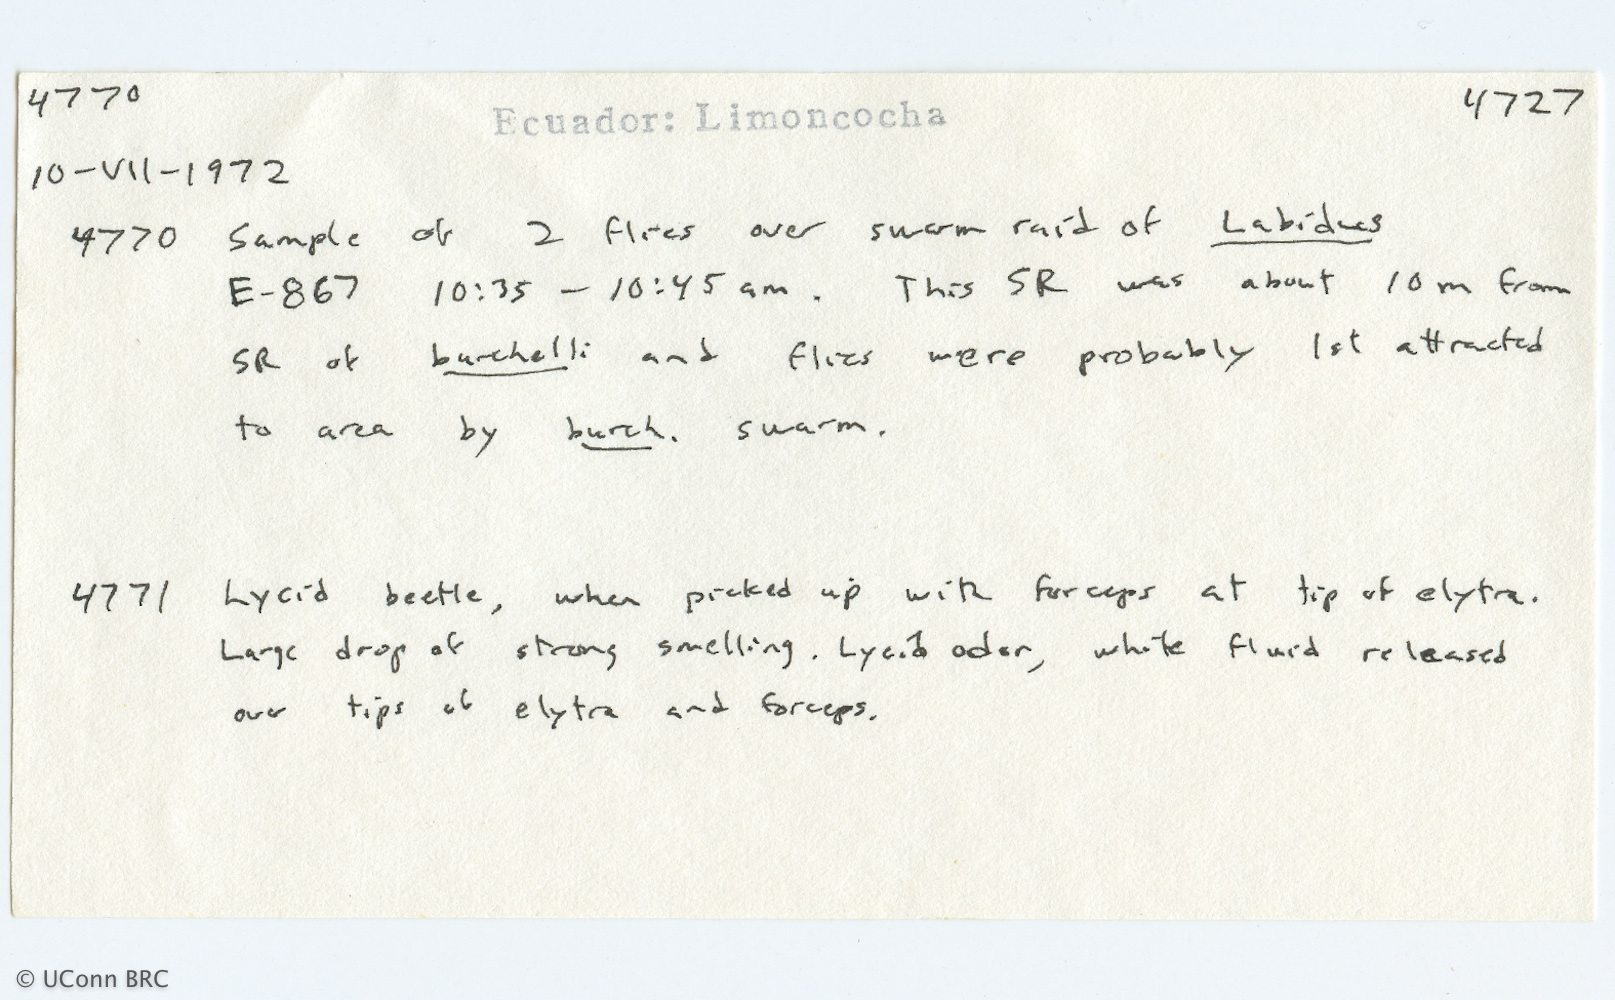 4770 Ecuador: Limoncocha 4727
10-VII-1972
4770 Sample of 2 flies over swarm raid of Labidues
E-867 10:35 - 10:45 am. This SR was about 10 m from
SR of burchelli and flies were probably 1st attracted
to area by burch. swarm.
4771 Lycid beetle, when picked up with forceps at tip of elytra.
Large drop of strong smelling. Lycid odor, white fluid released
over tips of elytra and forceps.
© UConn BRC